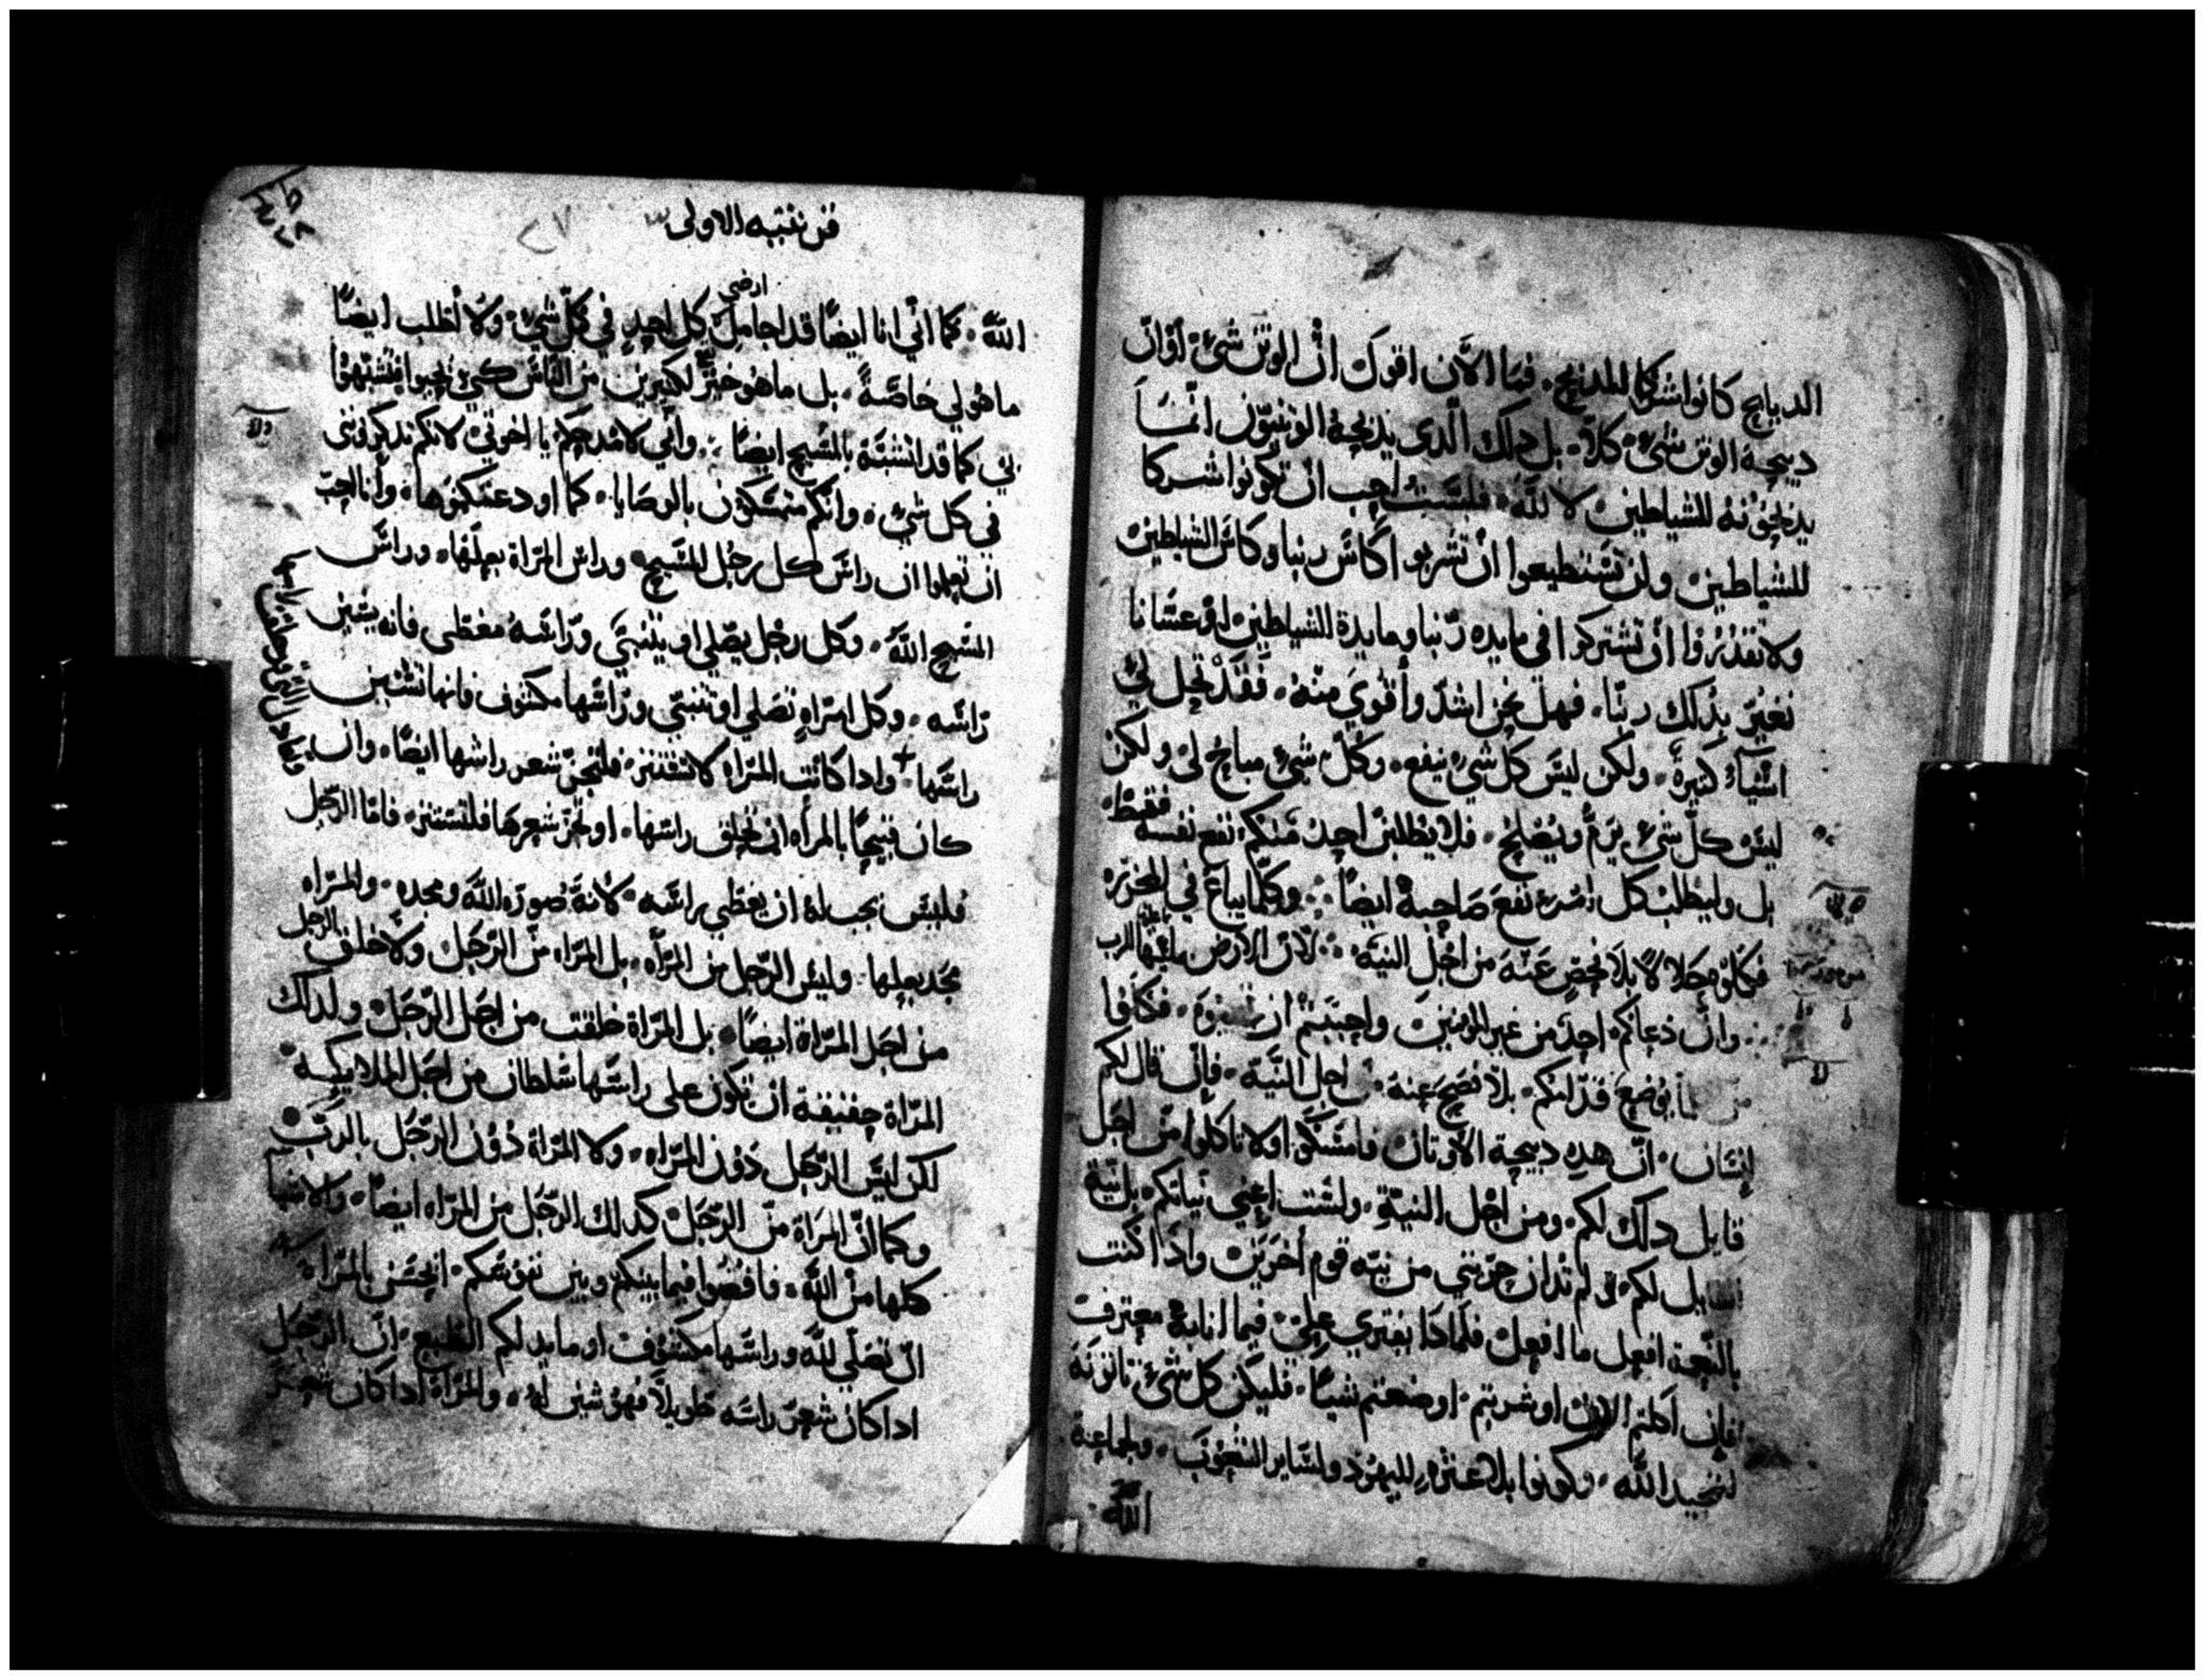 الدبايح كانوا شركا للمدبح. فما الان اقوك انّ الوتن شىٌ اوانّ
دبيحة الوتن شىٌ كلاّ. بل دلك الّدى يدبحهُ الوتنيّون انّمَا
يدبحوُنهُ للشياطين لا للّه. فلسَتُ احِب ان تكونوا شركا
للشياطين ولن تسَتطيعوا انْ تشربوا كاسَ ربنا وكاسَ الشياطين
ولا تقدرُوا انْ تشتركوا في مايده ربنا ومايدة الشياطين اوْ عسَانا
نغيرّ بدلك ربنّا. فهل نحن اشدّ وأقوي منهُ. فقدْ تحِل لي
اشيآءُ كتيرةٌ. ولكن ليسَ كل شيٌ ينفع. وكلّ شيٌ مباح لي ولكن
ليسَ كلّ شيٌ يَرمُّ ويُصْلحُ. فلا يطلبنّ احِدُ مَنكم نفع نفسهُ فقط
بل وليطلبْ كل امرءٍ نفع صَاحِبهُ ايضاً. وكلّما يباعُ في المجزره
فكلوهُ حَلالاً بلا فحَصٍ عَنهُ من اجْل النية. لانّ الارض بملئها للرب
وانْ دعاكم احِدٌ من غير المومنينَ واحِببتمْ ان فكلوا
يوُضع قدّامكم. بلا فحَص عِنهُ اجل النيَّة. فإنْ قال لكم
إنسَان. انّ هدهِ دبيحِة الاوتان فامسَكوا ولا تاكلوا منْ اجَل
قايل دلك لكم. ومن اجْل النيّةِ. ولسَت اعِني نياتكم بل نيّة
القايل لكم. لم تدان حِرّيتي من نيّه قومٍ أخرَيْن وادَا كنت
بالنعِمة افعِل ما افعِل فلمادَا يفتري عِليّ فيما انا بهُ معِترفٌ
فإن اكلتم الان او شربتم. او صنعتم شياً. فليكن كل شىٌ تاتونهُ
لتمجيد اللّه. وكونوا بلا عثرهٍ لليهوُد ولسَاير الشعِوُب. ولجماعِة
اللّه
قرنتيه الاولى
٢٧
ارضي
اللّه. كما انّي انا ايضاً قد اجامل كل احِدٍ في كلّ شيٌ. ولا أطلب ايضاً
ما هو لي خاصَّةً. بل ما هوُ خيرٌ لكتيرين من النّاسَ كيْ يحيوا فتشبّهوُا
بي كما قد اتشبَّهُ بالمسَيحِ ايضاً. وانّي لامْدحِكم يا اخوتيْ لانكم تدكروُنني
في كل شيٌ. وانكم متمسَكوُن بالوصَايا. كما اودعتكموُها. وأنا احِبّ
ان تعِلموا ان راسَ كل رجُل المسَيحِ. وراسَ المرَاة بعِلها. وراسَ
المسَيحِ اللّهُ. وكل رجْل يصَلي او يتنبيَ ورَاسَهُ مغطى فانه يشين
رَاسَه. وكل امرَاةٍ تصَلي او تتنبي ورَاسَها مكشوف فانها تشين
راسَها + وادا كانت المرَاه لا تستتر. فلتجزّ شعر راسَها ايضاً. وان
كان قبيحاً بالمرأه ان تحِلق راسَها. او تجزّ شعِرها فلتستتر. فامّا الرّجل
فليسَ يجب لهُ ان يغطّي راسَه لانهُ صُورَه اللّه ومجده. والمرَاه
مجد بعِلها. وليسَ الرّجل من المرَأه. بل المرَاه منَ الرّجَل ولا خلف الرجل
من اجَل المرَاة ايضاً. بل المرَاة خلقت من اجَل الرّجَل ولدلك
المرَاة حِقيقة ان تكون على راسَها سَلطان من اجَل الملايكه
لكن ليسَ الرّجَل دوُن المرَاه. ولا المرَاة دوُن الرّجَل بالربّ
وكما انّ المرَاة منَ الرّجَل كدلك الرّجَل من المرَاه ايضاً. والاشيا
كلها منْ اللّه. فاقضُوا فيما بينكم وبين نفوسَكم. ايحَسَن بالمرَاه
انْ تصَلّي للّه وراسَها مكشوُف او ما يدلكم الطبع. انّ الرّجَل
ادا كان شعِرَ راسَه طويلاً فهوُ شين لهُ. والمرَاة ادا كان شعِر